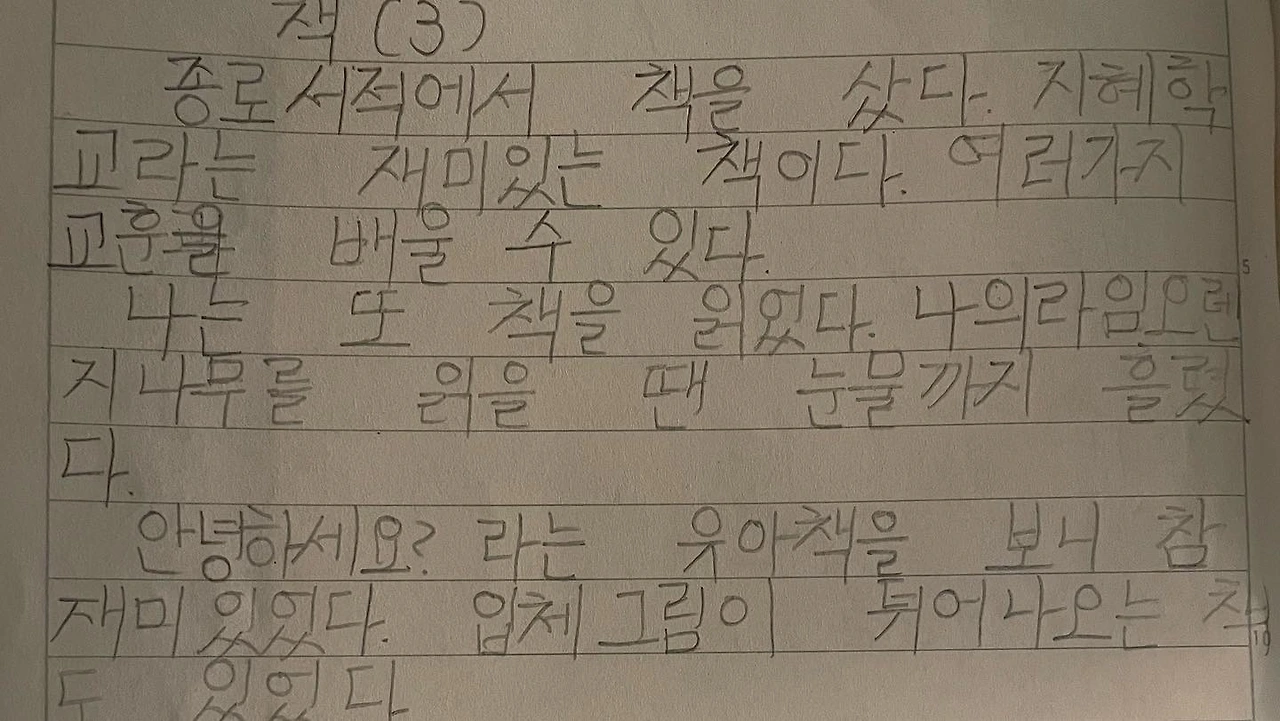 책 (3)
종로서적에서 책을 샀다. 지혜학
교라는 재미있는 책이다. 여러가지
교훈을 배울 수 있다.
나는 또 책을 읽었다. 나의라임오렌
지나무를 읽을 땐 눈물까지 흘렸
다.
안녕하세요? 라는 유아책을 보니 참
재미있었다. 입체그림이 튀어나오는 책
도 있었다
5
10